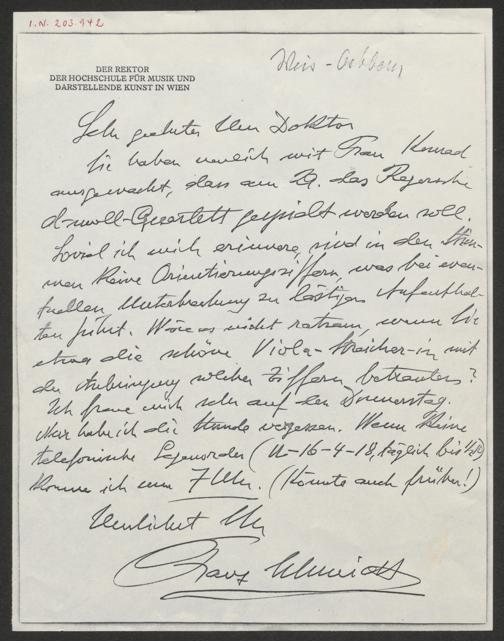 I.N. 203.942
DER REKTOR
DER HOCHSCHULE FÜR MUSIK UND
DARSTELLENDE KUNST IN WIEN
Sehr geehrter Herr Doktor
Sie haben neulich mit Frau Konrad
ausgemacht, dass am 29. das Regersche
d-moll-Quartett gespielt werden soll.
Soviel ich mich erinnere, sind in den Stim-
men keine Orientierungsziffern, was bei even-
tuellen Unterbrechung zu lästigen Aufenthal-
ten führt. Wäre es nicht ratsam, wenn Sie
etwa die schöne Viola-Streicher-in mit
der Anbringung solcher Ziffern betrauten?
Ich freue mich sehr auf den Donnerstag.
Nur habe ich die Stunde vergessen. Wenn keine
telefonische Gegenorder (U-16-4-18, täglich bis
komme ich um 7 Uhr. (Könnte auch früher!)
Herzlichst Ihr
Franz Schmidt